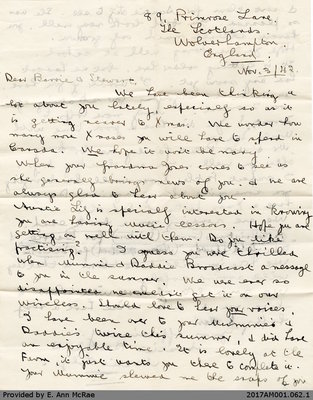 89, Primrose Lane.
The Scotlands.
Wolverhampton.
England.
Nov. 3/42.
Dear Barrie & Stewart.
We have been thinking a
lot about you lately, especially so as it
is getting nearer to Xmas. We wonder how
many more Xmases you will have to spend in
Canada. We hope it wont be many.
When your Grandma Jones comes to see us
she generally brings news of you, & we are
always glad to hear about you.
Auntie is specially interested in knowing
you are having music lessons. Hope you are
getting on well with them. Do you like
practising? I guess you were thrilled
when Mummie & Daddie Broadcast a message
to you in the summer. We were ever so
disappointed we couldn't get it on our
wireless. I should love to hear your voices.
I have been over to your Mummies &
Daddies twice this summer, & did have
an enjoyable time. It is lovely at the
Farm, it just wants you there to complete it.
Your Mummie showed me the snaps of you
Provided by E. Ann McRae
2017AM001.062.1